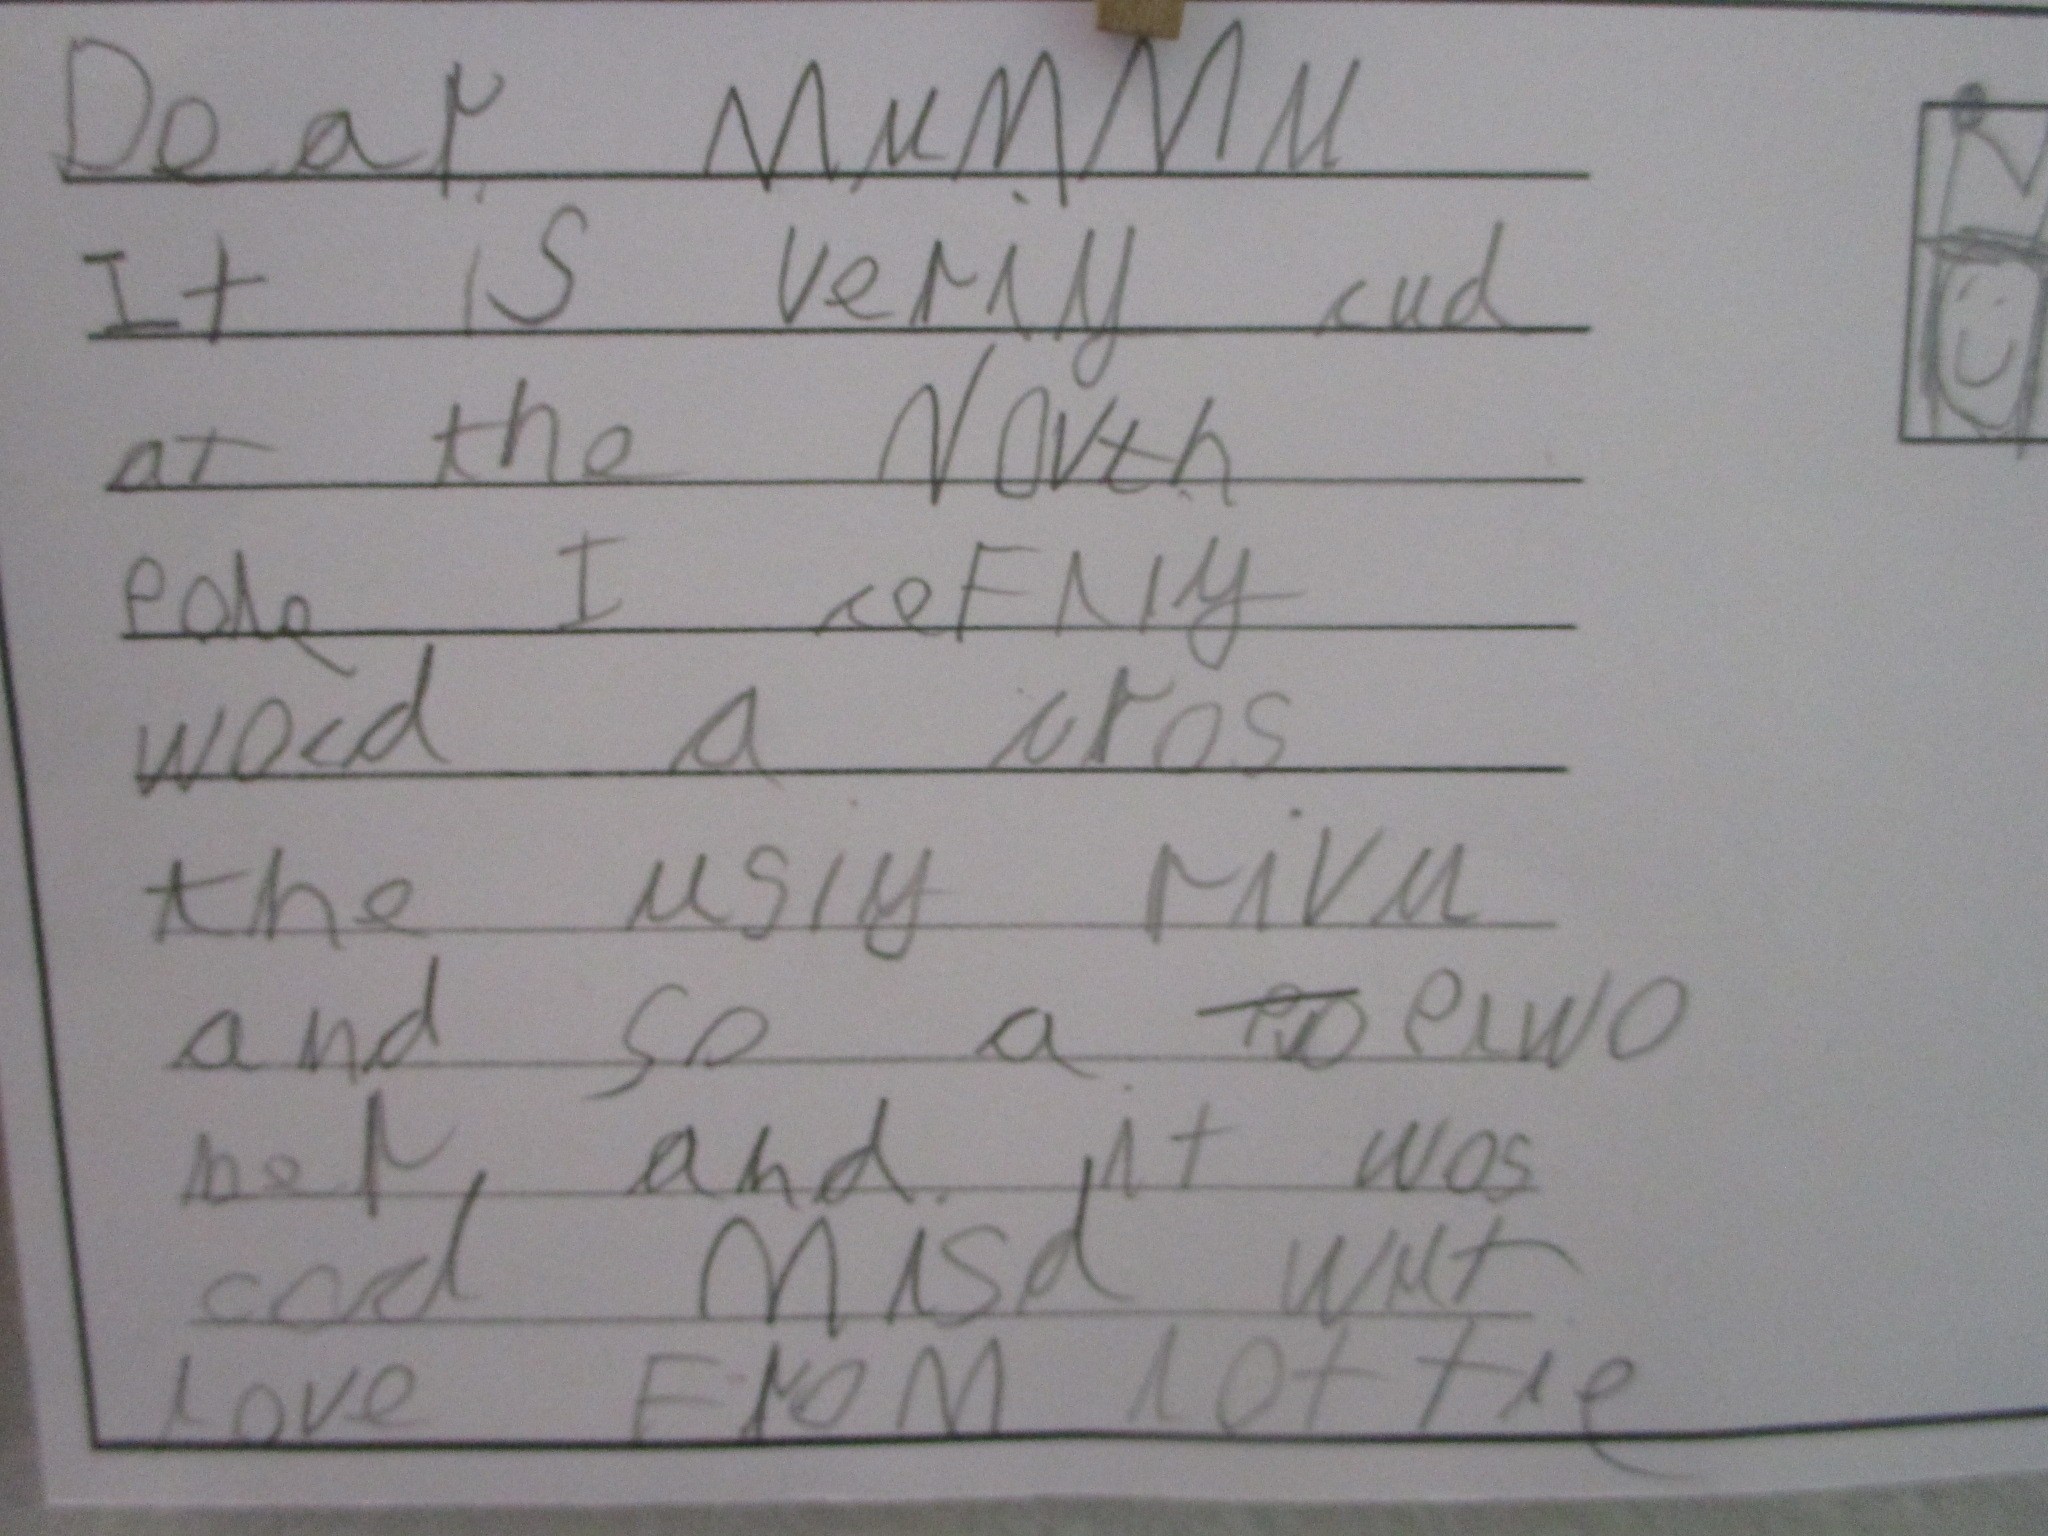 Dear MuMMu
It is veriy cud
at the North
Pole I ceFNly
wocd a cros
the usiy rivu
and so a Po Pluwo
ber and it wos
cod Misd wut
Love FroM lottie